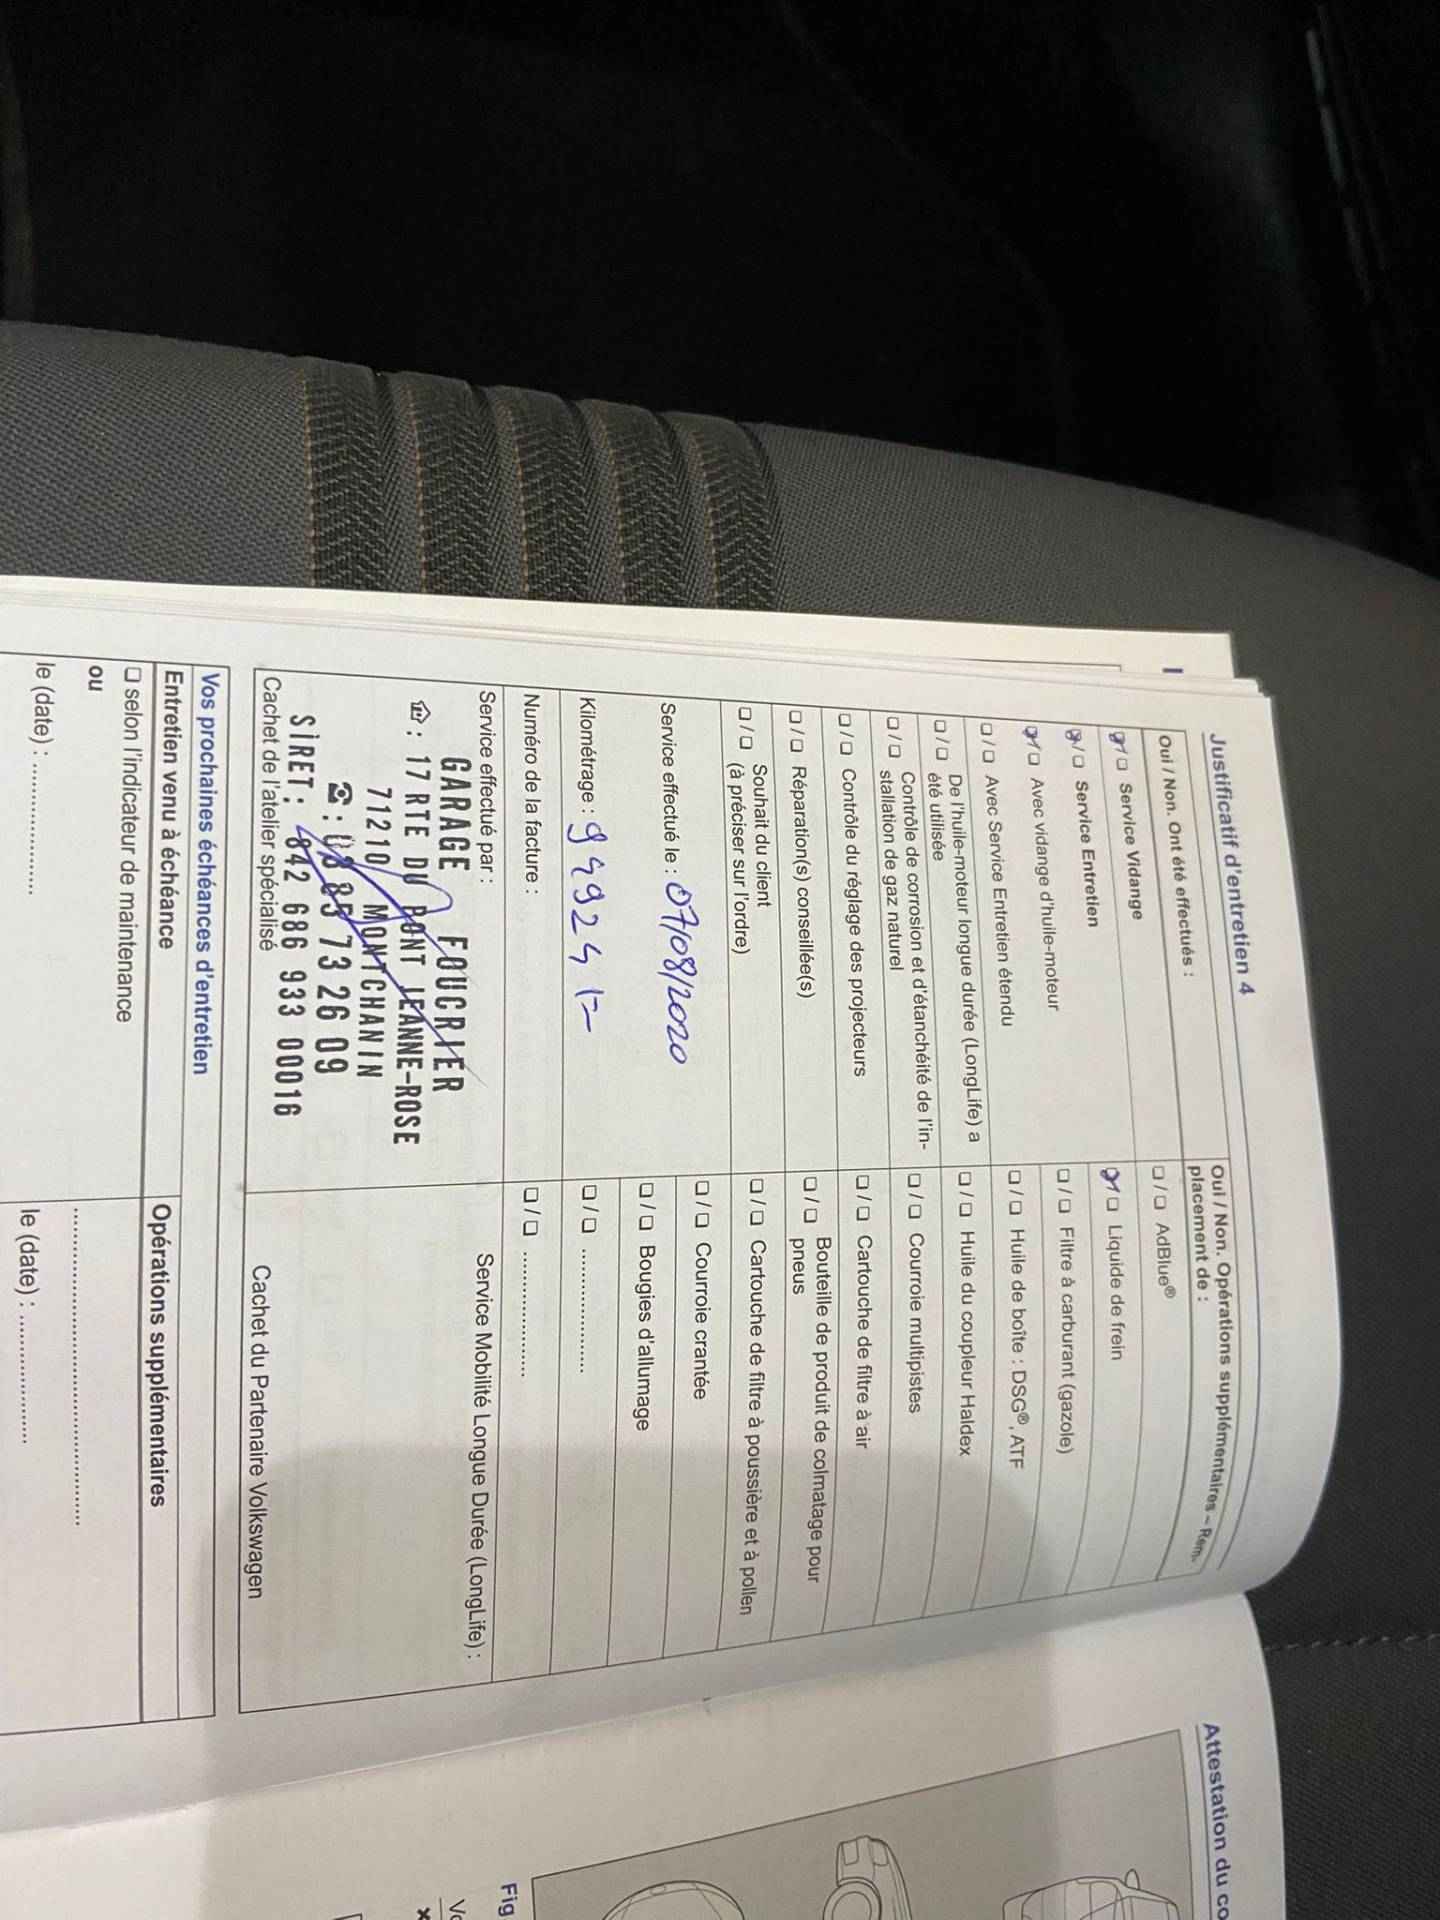 Justificatif d'entretien 4
Oui / Non. Ont été effectués :
❏ / ❏ Service Vidange
❏ / ❏ Service Entretien
❏ / ❏ Avec vidange d'huile-moteur
❏ / ❏ Avec Service Entretien étendu
❏ / ❏ De l'huile-moteur longue durée (LongLife) a
été utilisée
❏ / ❏ Contrôle de corrosion et d'étanchéité de l'in-
stallation de gaz naturel
❏ / ❏ Contrôle du réglage des projecteurs
❏ / ❏ Réparation(s) conseillée(s)
❏ / ❏ Souhait du client
(à préciser sur l'ordre)
Service effectué le : 07/08/2020
Kilométrage :
Numéro de la facture :
Service effectué par :
GARAGE FOUCRIER
: 17 RTE DU PONT JEANNE-ROSE
71210 MONTCHANIN
☎ : 03 85 73 26 09
SIRET : 842 686 933 00016
Cachet de l'atelier spécialisé
Oui / Non. Opérations supplémentaires – Rem-
placement de :
❏ / ❏ AdBlue®
❏ / ❏ Liquide de frein
❏ / ❏ Filtre à carburant (gazole)
❏ / ❏ Huile de boîte : DSG®, ATF
❏ / ❏ Huile du coupleur Haldex
❏ / ❏ Courroie multipistes
❏ / ❏ Cartouche de filtre à air
❏ / ❏ Bouteille de produit de colmatage pour
pneus
❏ / ❏ Cartouche de filtre à poussière et à pollen
❏ / ❏ Courroie crantée
❏ / ❏ Bougies d'allumage
❏ / ❏ ......................
❏ / ❏ ......................
Service Mobilité Longue Durée (LongLife) :
Cachet du Partenaire Volkswagen
Vos prochaines échéances d'entretien
Entretien venu à échéance
❏ selon l'indicateur de maintenance
ou
le (date) : ......................
Opérations supplémentaires
......................................................
le (date) : ......................
Attestation du co
Fig